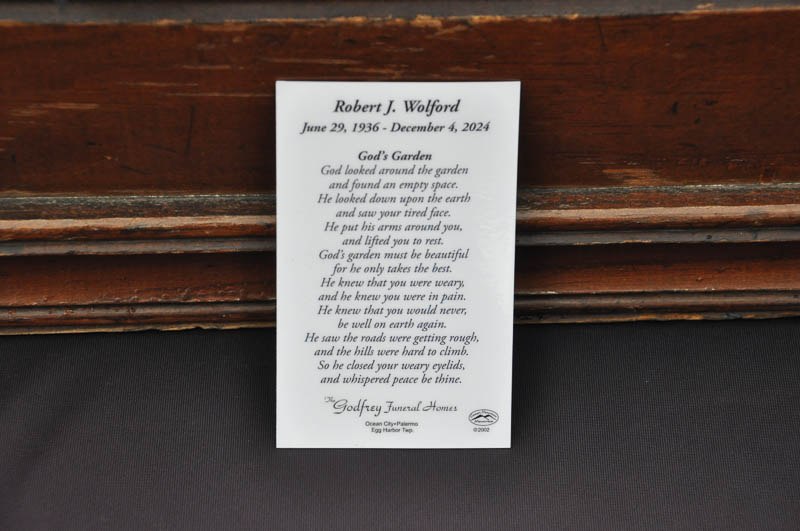 Robert J. Wolford
June 29, 1936 - December 4, 2024
God's Garden
God looked around the garden
and found an empty space.
He looked down upon the earth
and saw your tired face.
He put his arms around you,
and lifted you to rest.
God's garden must be beautiful
for he only takes the best.
He knew that you were weary,
and he knew you were in pain.
He knew that you would never,
be well on earth again.
He saw the roads were getting rough,
and the hills were hard to climb.
So he closed your weary eyelids,
and whispered peace be thine.
The Godfrey Funeral Homes
Ocean City•Palermo
Egg Harbor Twp.
©2002